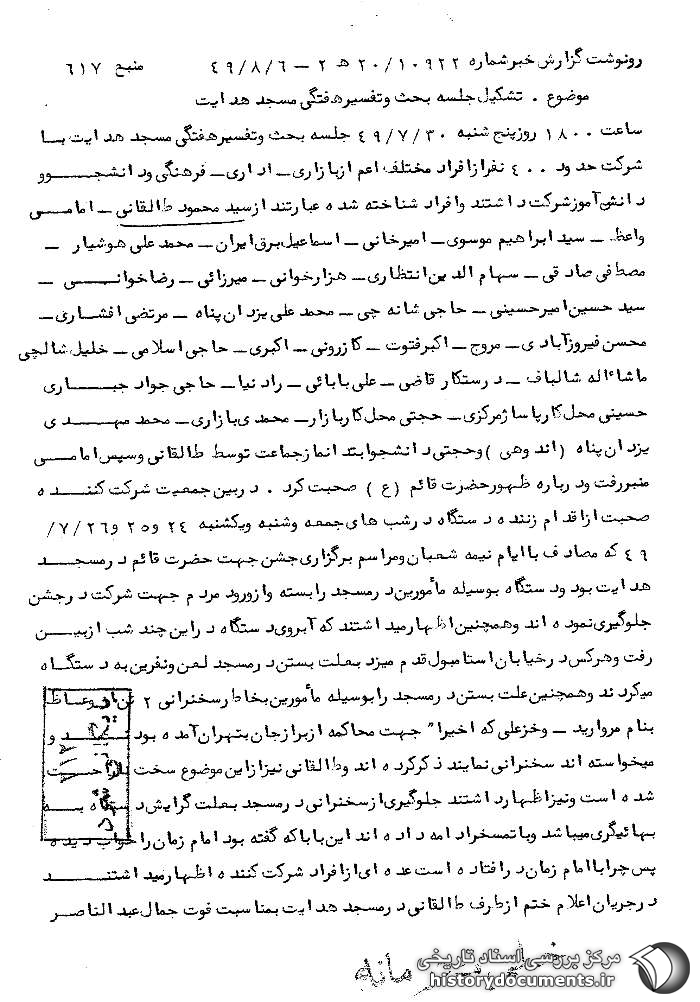 رونوشت گزارش خبرشماره ۲۰/۱۰۹۲۲ هـ ۲ – ۴۹/۸/۶ منبع ۶۱۷
موضوع . تشکیل جلسه بحث وتفسیرهفتگی مسجد هدایت
ساعت ۱۸۰۰ روزپنج شنبه ۴۹/۷/۳۰ جلسه بحث وتفسیرهفتگی مسجد هدایت با
شرکت حدود ۴۰۰ نفرازافراد مختلف اعم ازبازاری – اداری – فرهنگی ودانشجو و
دانش آموزشرکت داشتند وافراد شناخته شده عبارتند ازسید محمود طالقانی – امامی
واعظ – سید ابراهیم موسوی – امیرخانی – اسماعیل برق ایران – محمد علی هوشیار –
مصطفی صادقی – سهام الدین انتظاری – هزارخوانی – میرزائی – رضاخوانی –
سید حسین امیرحسینی – حاجی شانه چی – محمد علی یزدان پناه – مرتضی افشاری –
محسن فیروزآبادی – مروج – اکبرفتوت – کازرونی – اکبری – حاجی اسلامی – خلیل شالچی
ماشاءاله شالباف – درستکار قاضی – علی بابائی – رادنیا – حاجی جواد جباری
حسینی محل کارپاساژمرکزی – حجتی محل کاربازار – محمدی بازاری – محمد مهدی
یزدان پناه (اند وهی) وحجتی دانشجوابتدانمازجماعت توسط طالقانی وسپس امامی
منبررفت ودرباره ظهورحضرت قائم (ع) صحبت کرد . دربین جمعیت شرکت کننده
صحبت ازاقدام زننده دستگاه درشب های جمعه وشنبه ویکشنبه ۲۴ و۲۵ و۲۶/۷/
۴۹ که مصادف باایام نیمه شعبان ومراسم برگزاری جشن جهت حضرت قائم درمسجد
هدایت بود ودستگاه بوسیله مأمورین درمسجد رابسته وازورود مردم جهت شرکت درجشن
جلوگیری نموده اند وهمچنین اظهارمیداشتند که آبروی دستگاه دراین چند شب ازبین
رفت وهرکس درخیابان استامبول قدم میزد بعلت بستن درمسجد لعن ونفرین به دستگاه
میکردند وهمچنین علت بستن درمسجد رابوسیله مأمورین بخاطرسخنرانی ۲ تن ازوعاظ
بنام مروارید – وخزعلی که اخیرا" جهت محاکمه ازبرازجان بتهران آمده بودند و
میخواسته اند سخنرانی نمایند ذکرکرده اند وطالقانی نیزازاین موضوع سخت ناراحت
شده است ونیزاظهارداشتند جلوگیری ازسخنرانی درمسجد بعلت گرایش دستگاه به
بهائیگری میباشد وباتمسخرادامه داده اند این باباکه گفته بود امام زمان راخواب دیده
پس چراباامام زمان درافتاده است عده ای ازافراد شرکت کننده اظهارمیداشتند
درجریان اعلام ختم ازطرف طالقانی درمسجد هدایت بمناسبت فوت جمال عبدالناصر
مرکز بررسی اسناد تاریخی
historydocuments.ir